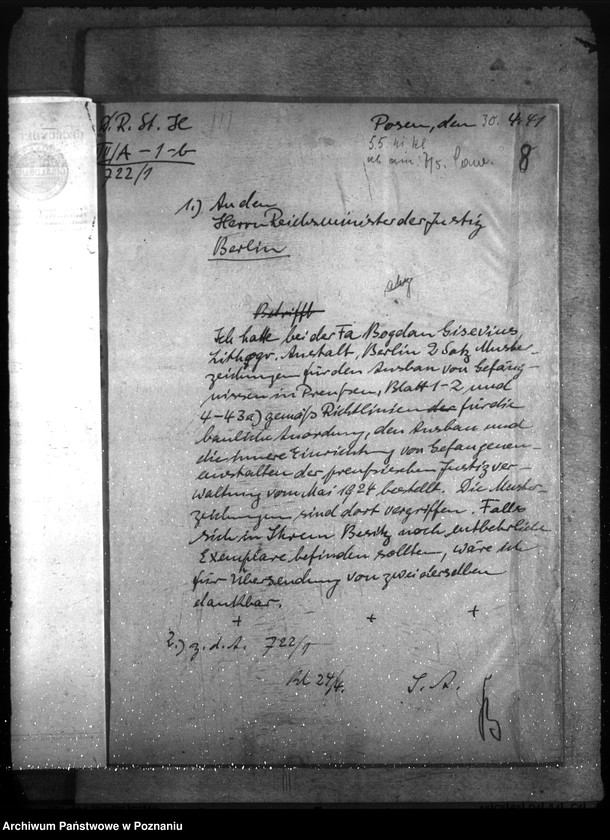 D.R.St.H
III/A-1-b
722/1
Posen, den 30. 4. 41
8
1.) An den
Herrn Reichsminister der Justiz
Berlin
Betrifft
Ich hatte bei der Fa Bogdan Gisevius,
Lithogr. Anstalt, Berlin 2 Satz Muster-
zeichnungen für den Ausbau von Gefäng-
nissen in Preußen, Blatt 1-2 und
4-43a) gemäß Richtlinien der für die
bauliche Anordnung, den Ausbau und
die innere Einrichtung von Gefangenen-
anstalten der preußischen Justizver-
waltung vom Mai 1924 bestellt. Die Muster-
zeichnungen sind dort vergriffen. Falls
sich in Ihrem Besitz noch entbehrliche
Exemplare befinden sollten, wäre ich
für Übersendung von zwei derselben
dankbar.
+ + +
2.) z.d.A. 722/1
24/4. I.A.
Archiwum Państwowe w Poznaniu